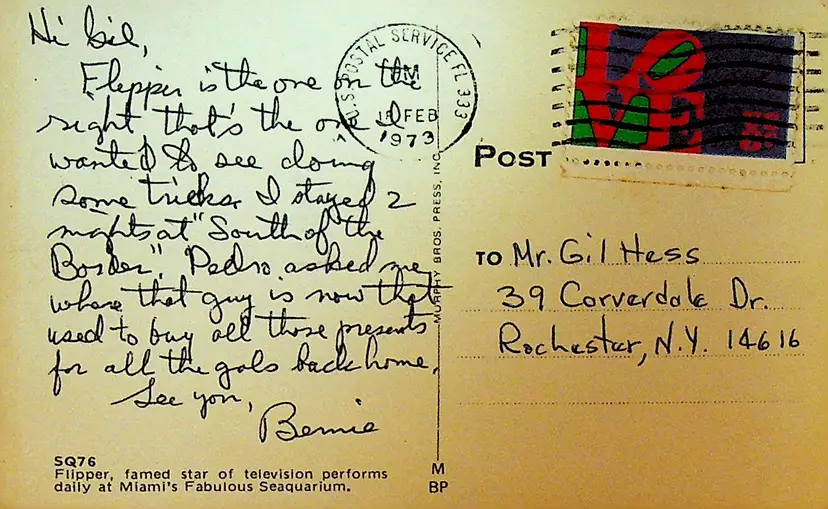 Hi Gil,
Flipper is the one on the
right that's the one I
wanted to see doing
some tricks. I stayed 2
nights at "South of the
Border". Pedro asked me
where that guy is now that
used to buy all those presents
for all the gals back home.
See you,
Bernie
SQ76
Flipper, famed star of television performs
daily at Miami's Fabulous Seaquarium.
U.S. POSTAL SERVICE FL 333
PM
FEB
1973
MURPHY BROS. PRESS, INC.
M
BP
LOVE
POST
TO Mr. Gil Hess
39 Corverdale Dr.
Rochester, N.Y. 14616